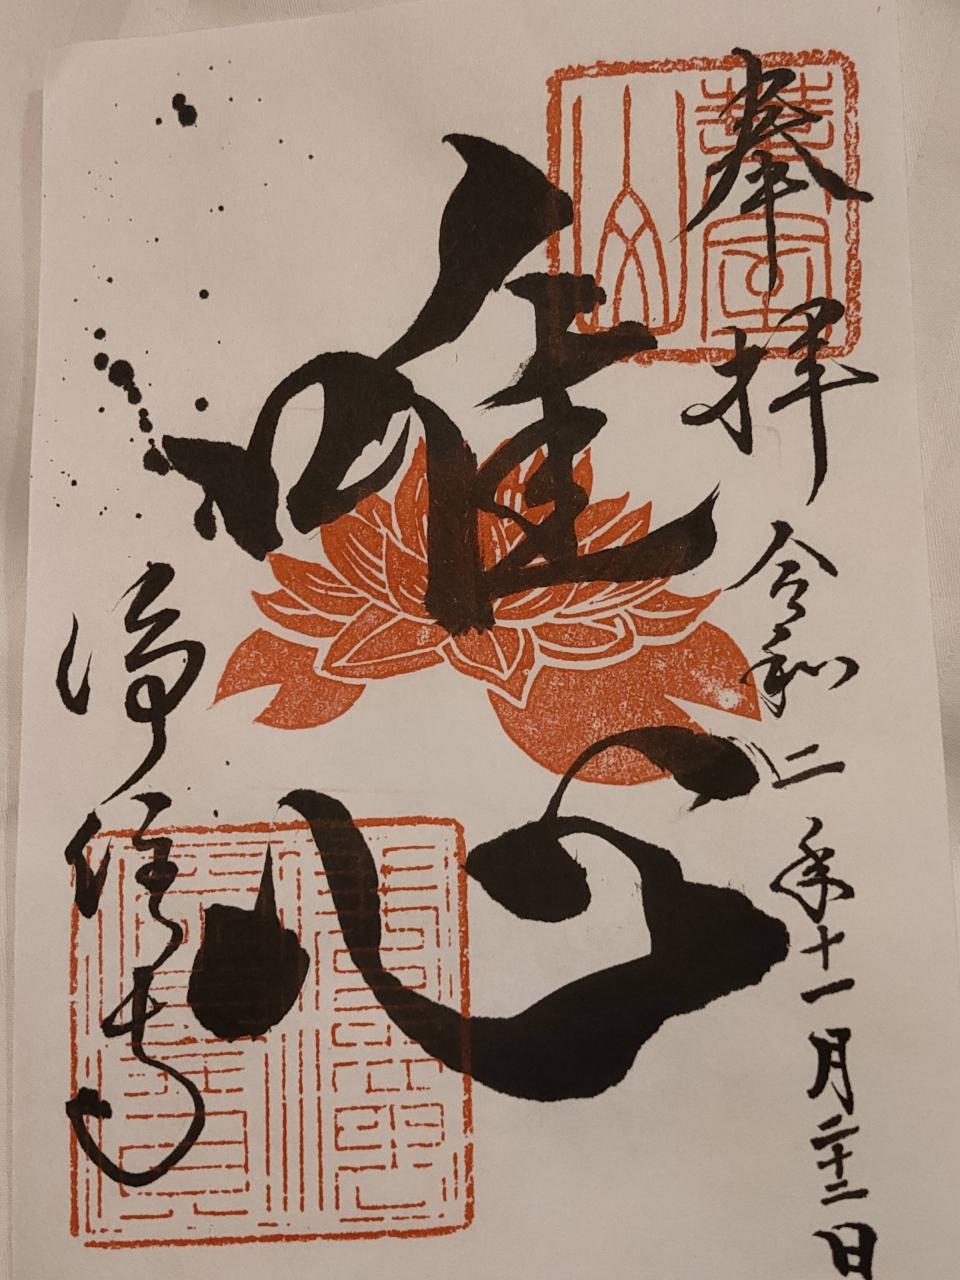 奉拝
令和二年十一月二十二日
唯心
浄住寺